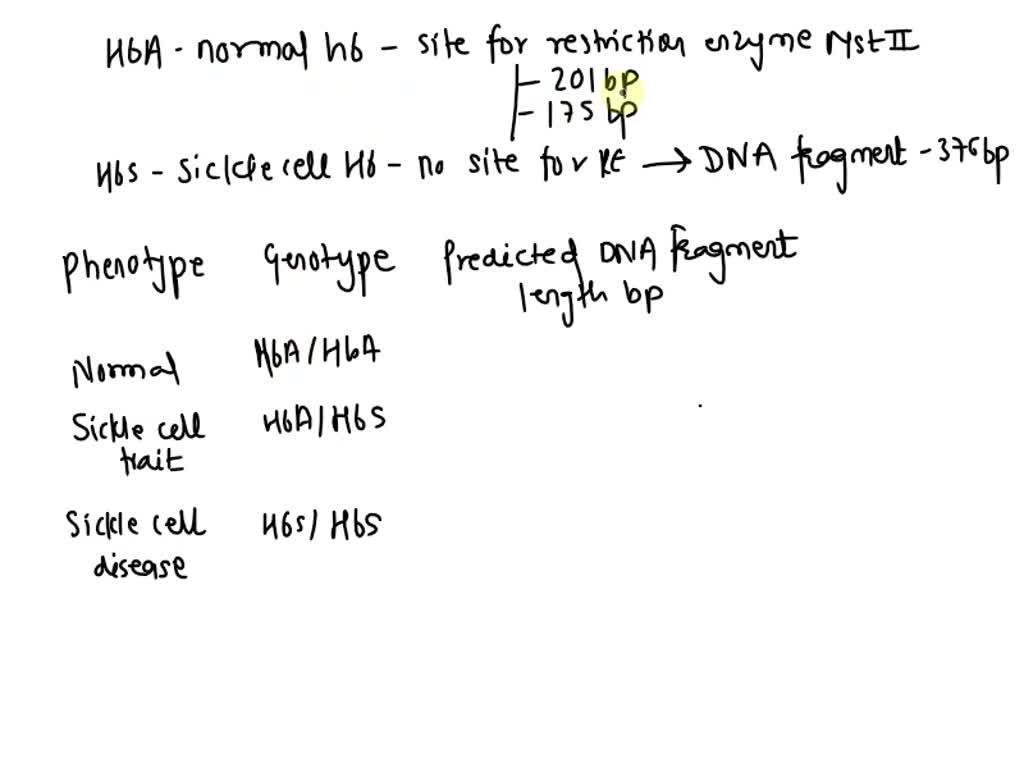 HbA - normal hb - site for restriction enzyme MstII
- 201 bp
- 175 bp
Hbs - Sickle cell Hb - no site for RE → DNA fragment - 376bp
Phenotype Genotype Predicted DNA fragment
length bp
Normal HbA/HbA
Sickle cell HbA/HbS
trait
Sickle cell Hbs/HbS
disease